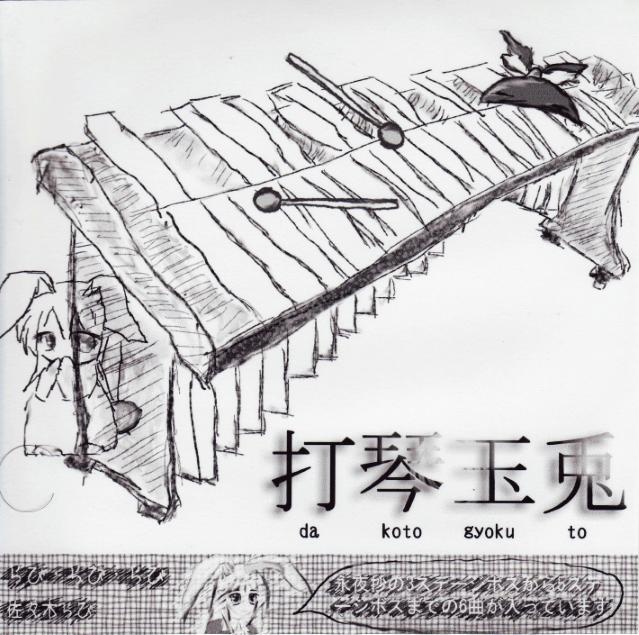 打琴玉兎
da koto gyoku to
らび らび らび
佐々木らび
永夜抄の3ステージボスから5ステ
ージボスまでの6曲が入っています